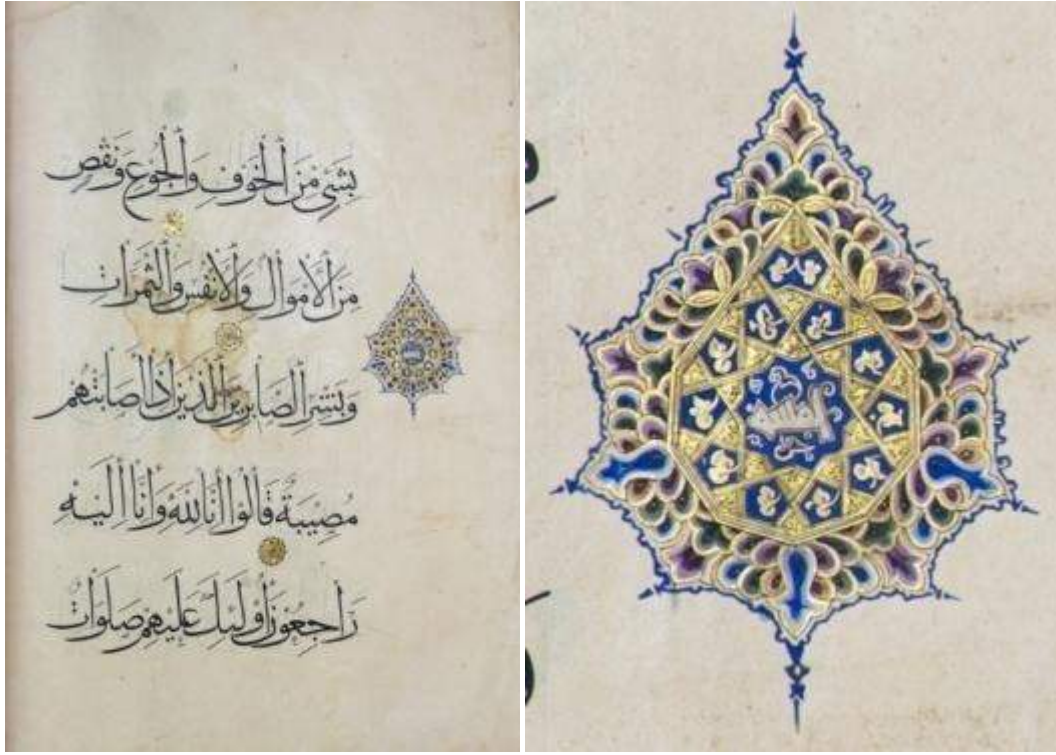 بِشَىْءٍ مِنَ الْخَوْفِ وَالْجُوعِ وَنَقْصٍ
مِنَ الْأَمْوَالِ وَالْأَنْفُسِ وَالثَّمَرَاتِ
وَبَشِّرِ الصَّابِرِينَ الَّذِينَ إِذَا أَصَابَتْهُمْ
مُصِيبَةٌ قَالُوا إِنَّا لِلَّهِ وَإِنَّا إِلَيْهِ
رَاجِعُونَ أُولَئِكَ عَلَيْهِمْ صَلَوَاتٌ